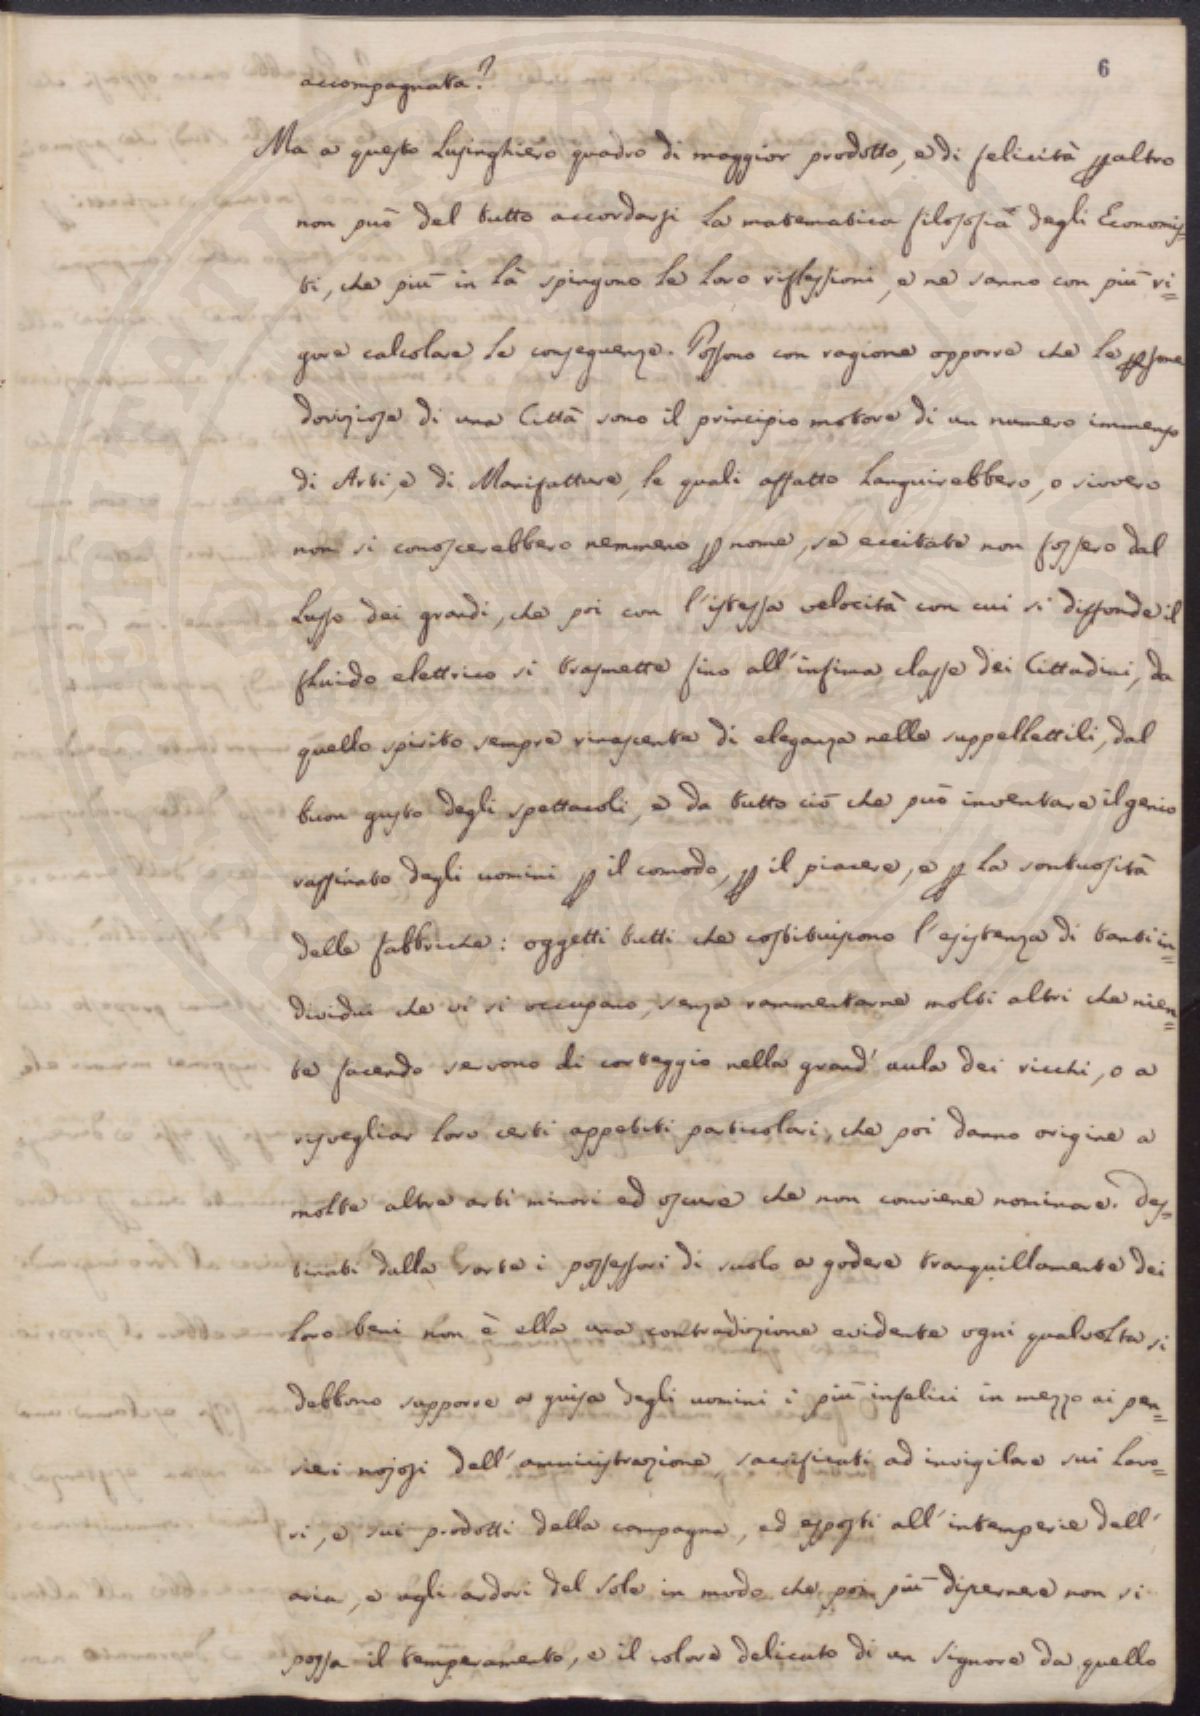 6
accompagnata?
Ma a questo Lusinghiero quadro di maggior prodotto, e di felicità ꝑaltro
non può del tutto accordarsi la matematica filosofia degli Economis=
ti, che più in là spingono le loro riflessioni, e ne sanno con più ri=
gore calcolare le conseguenze. Possono con ragione opporre che le ꝑsone
doviziose di una Città sono il principio motore di un numero immenso
di Arti, e di Manifatture, le quali affatto languirebbero, o sivvero
non si conoscerebbero nemmeno ꝑ nome, se eccitate non fossero dal
Lusso dei grandi, che poi con l'istessa velocità con cui si diffonde il
fluido elettrico si trasmette fino all'infima classe dei Cittadini, da
quello spirito sempre rinascente di eleganza nelle suppellettili, dal
buon gusto degli spettacoli, e da tutto ciò che può inventare il genio
raffinato degli uomini ꝑ il comodo, ꝑ il piacere, e ꝑ la sontuosità
delle fabbriche: oggetti tutti che costituiscono l'esistenza di tanti in=
dividui che vi si occupano, senza rammentarne molti altri che nien=
te facendo servono di corteggio nella grand'aula dei ricchi, o a
risvegliar loro certi appetiti particolari, che poi danno origine a
molte altre arti minori ed oscure che non conviene nominare. Des=
tinati dalla sorte i possessori di suolo a godere tranquillamente dei
loro beni non è ella una contradizione evidente ogni qualvolta si
debbono supporre a guisa degli uomini i più infelici in mezzo ai pen=
sieri nojosi dell'amministrazione, sacrificati ad invigilare sui Lavo=
ri, e sui prodotti della campagna, ed esposti all'intemperie dell'
aria, e agli ardori del Sole in modo che poi più discernere non si
possa il temperamento, e il colore delicato di un Signore da quello